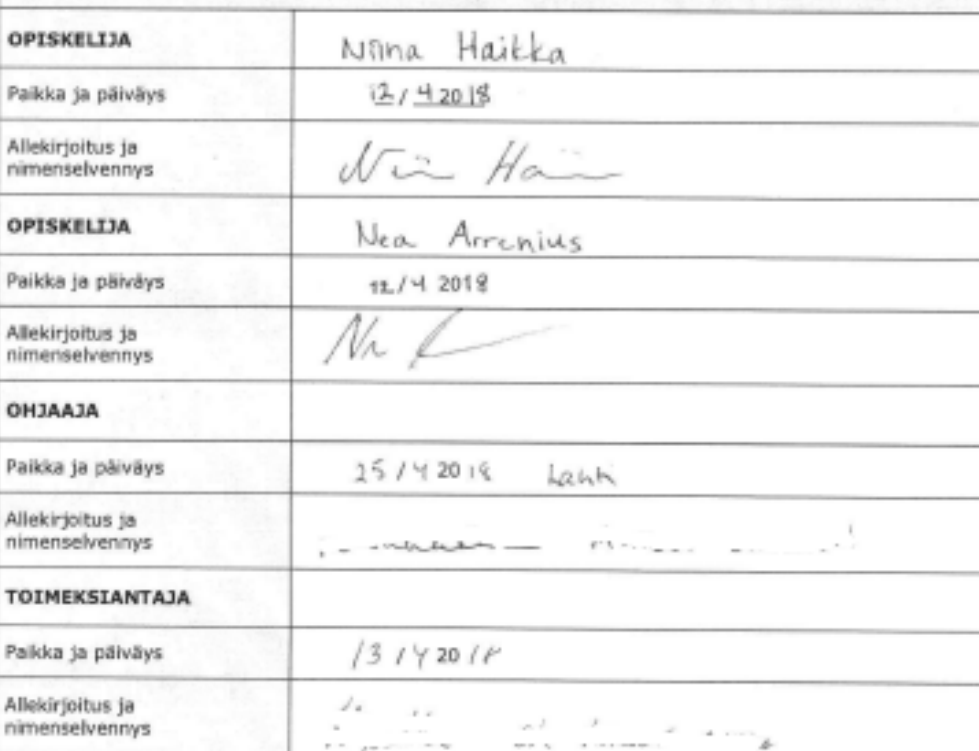 OPISKELIJA Niina Haikka
Paikka ja päiväys 12/4 2018
Allekirjoitus ja
nimenselvennys
OPISKELIJA Nea Arrenius
Paikka ja päiväys 12/4 2018
Allekirjoitus ja
nimenselvennys
OHJAAJA
Paikka ja päiväys 25/4 2018 Lahti
Allekirjoitus ja
nimenselvennys
TOIMEKSIANTAJA
Paikka ja päiväys 13/4 2018
Allekirjoitus ja
nimenselvennys